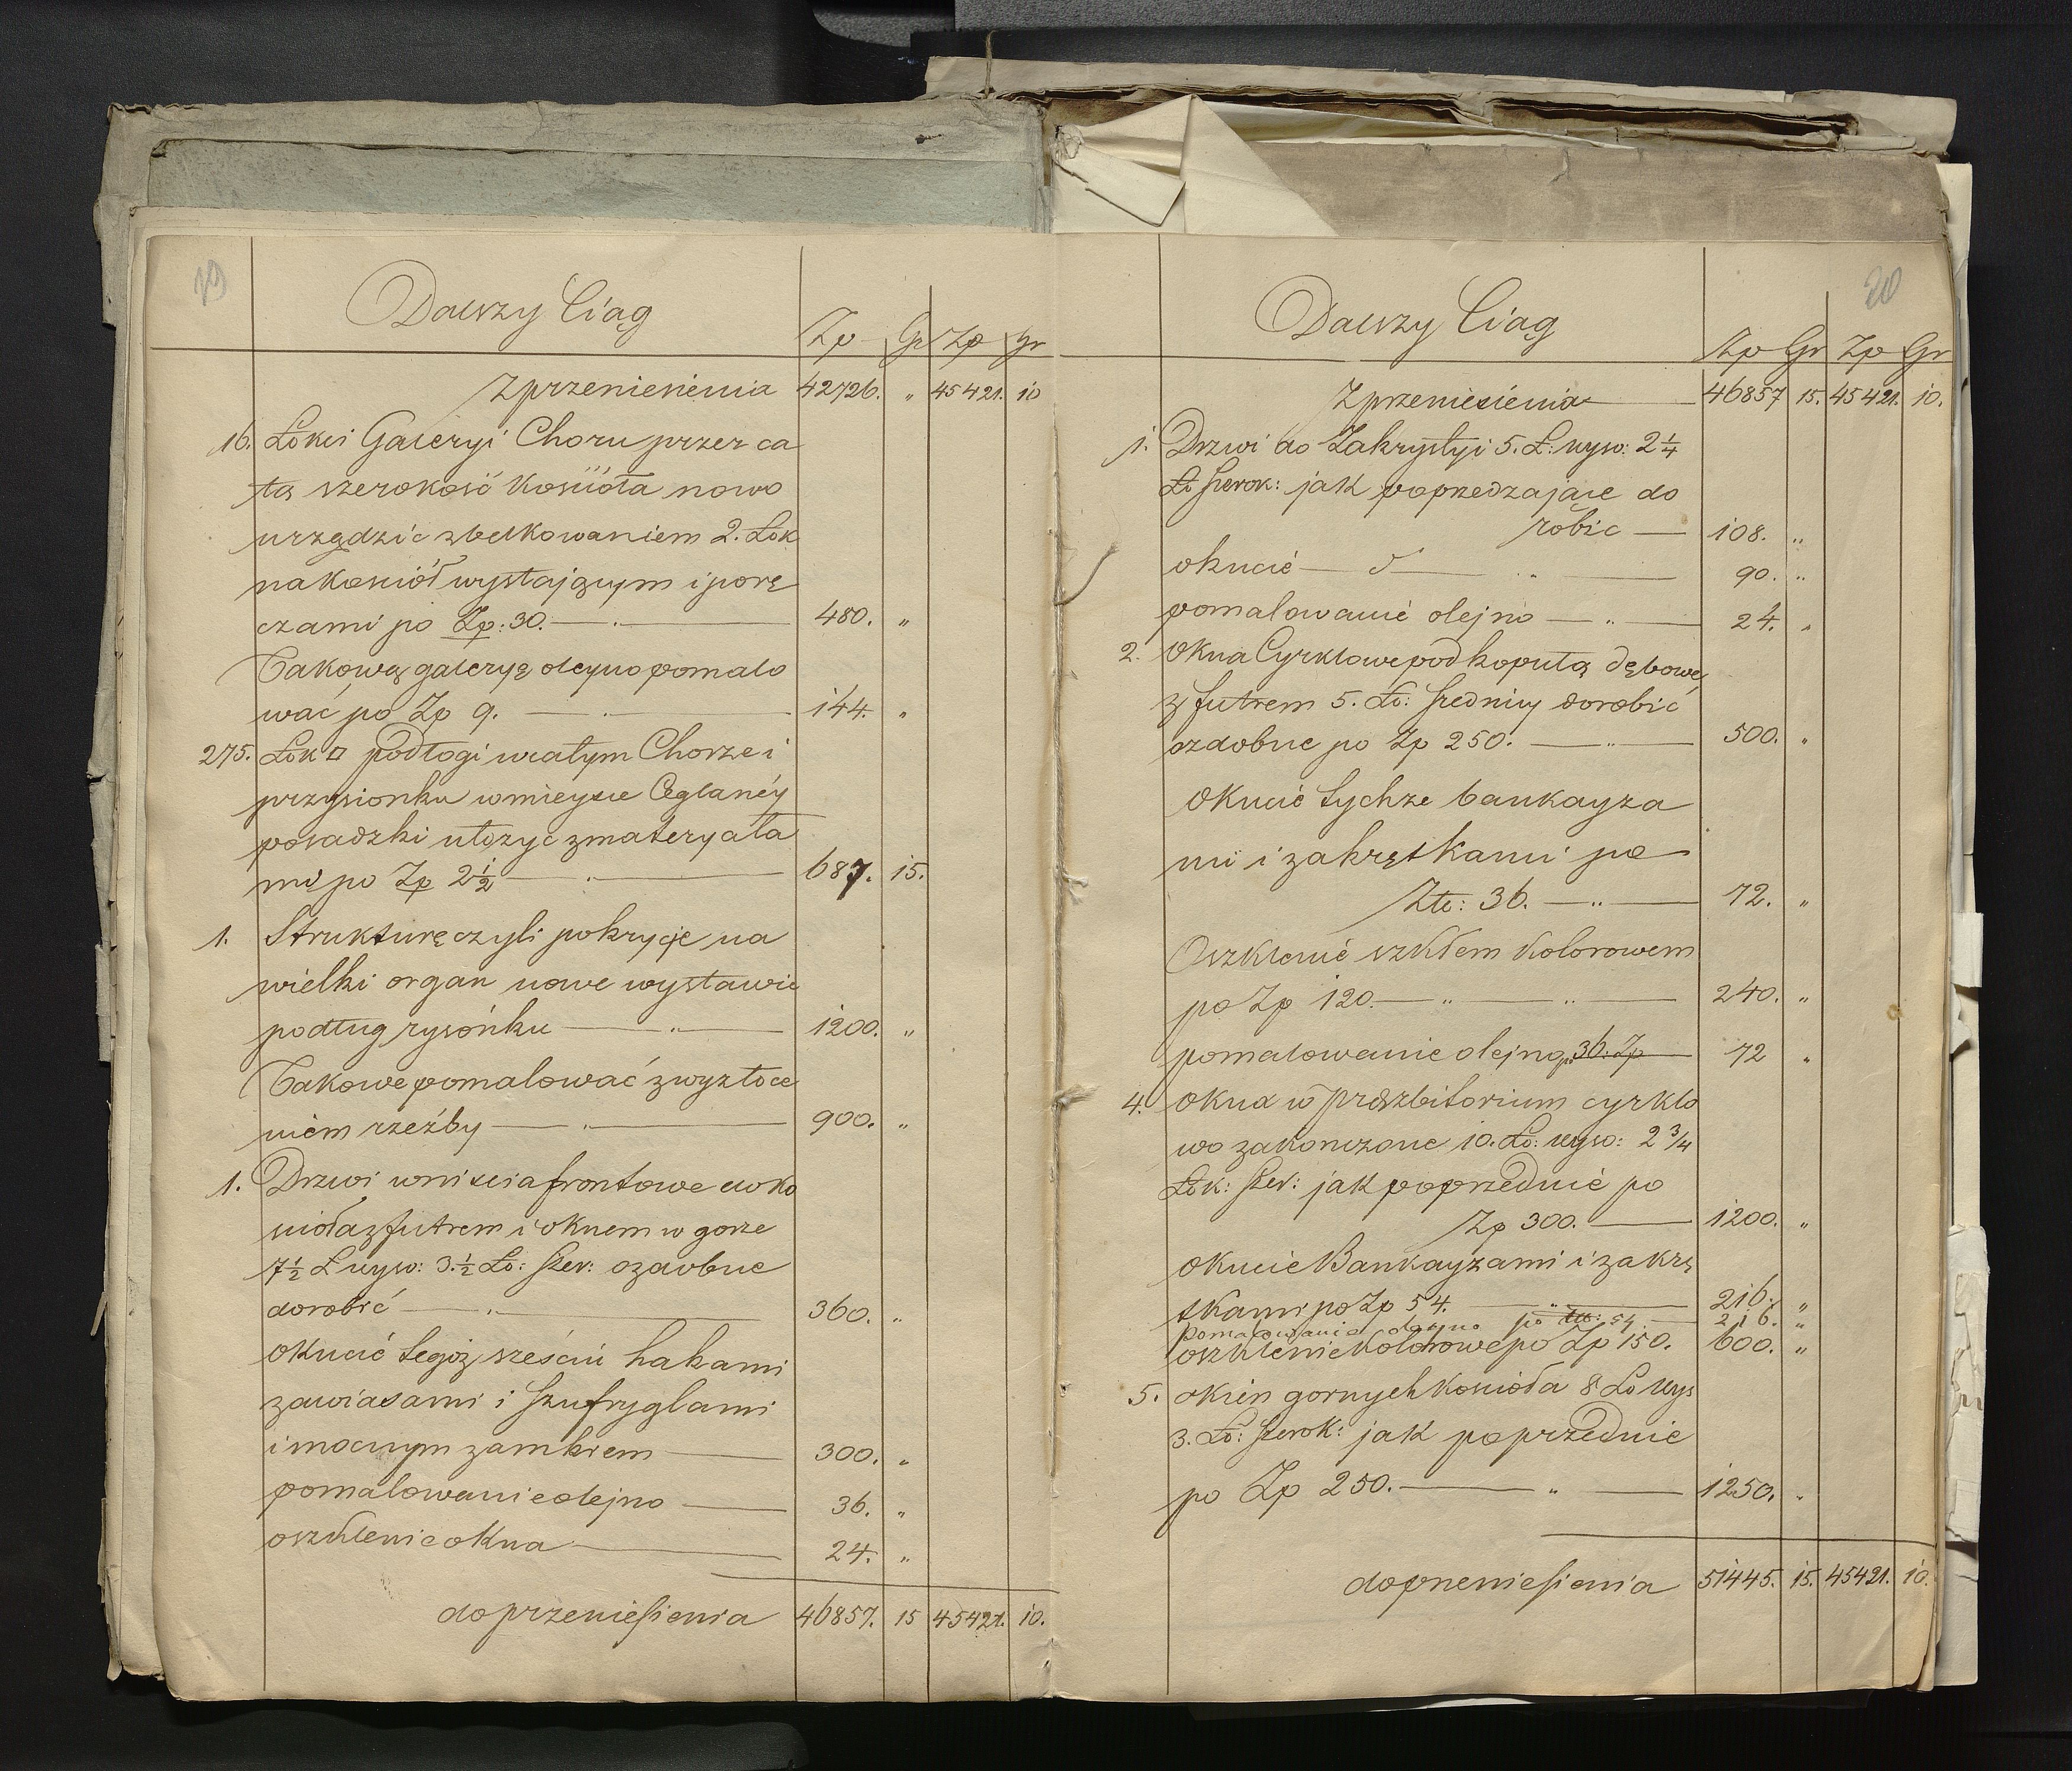 19
Dalszy Ciąg
Zp Gr Zp Gr
Z przeniesienia 42726. " 45421. 10
16. Łokci Galeryi Choru przez ca
łą szerokość koscioła nowo
urządzić z belkowaniem 2. Łok
na kościół wystającym i porę
czami po Zp: 30. — " — 480. "
Takową galeryę olejno pomalo
wać po Zp 9. — " — 144. "
275. Łok □ podłogi w całym Chorze i
przysionku w mieysce Ceglanéy
posadzki ułożyc z materyała
mi po Zp 2 1/2 — " — 687. 15.
1. Strukturę czyli pokrycie na
wielki organ nowe wystawic
podług rysónku — " — 1200. "
Takowe pomalować z wyzłoce
niem rzeźby — " — 900. "
1. Drzwi wniscia frontowe do ko
scioła z futrem i oknem w gorze
7 1/2 Ł wys: 3. 1/2 Ło: szer: ozdobne
dorobić — " — 360. "
Okucić tegoż sześciu hakami
zawiasami i szufryglami
i mocnym zamkiem — 300. "
pomalowanie olejno — 36. "
oszklenie okna — 24. "
do przeniesienia 46857. 15 45421. 10.
20
Dalszy Ciąg
Zp Gr Zp Gr
Z przeniesienia — 46857 15. 45421. 10.
1. Drzwi do Zakrystyi 5. Ł: wys: 2 1/4
Ło szerok: jak poprzedzające do
robic — 108. "
okucié — d — " — 90. "
pomalowanié olejno — " — 24. "
2. Okna Cyrklowe pod kopułą dębowe
z futrem 5. Ło: średnicy dorobić
ozdobne po Zp 250. — " — 500. "
Okucié tychże bankayza
mi i zakrętkami po
Złt: 36. — " — 72. "
Oszklenié szkłem kolorowem
po Zp 120. — " — " — 240. "
pomalowanie olejno p. 36: Zp — 72 "
4. Okna w Prezbitorium cyrklo
wo zakonczone 10. Ło: wyso: 2 3/4
Łok: szer: jak poprzednié po
Zp 300. — 1200. "
okucié Bankayzami i zakrę
tkami po Zp 54. — " — 216. "
Pomalowanie olejno po złt: 54. — 216. "
oszklenie kolorowe po Zp 150. 600. "
5. okien gornych koscioła 8 Ło wys
3. Ło: szerok: jak poprzednié
po Zp 250. — " — 1250. "
do przeniesienia 51445. 15. 45421. 10.